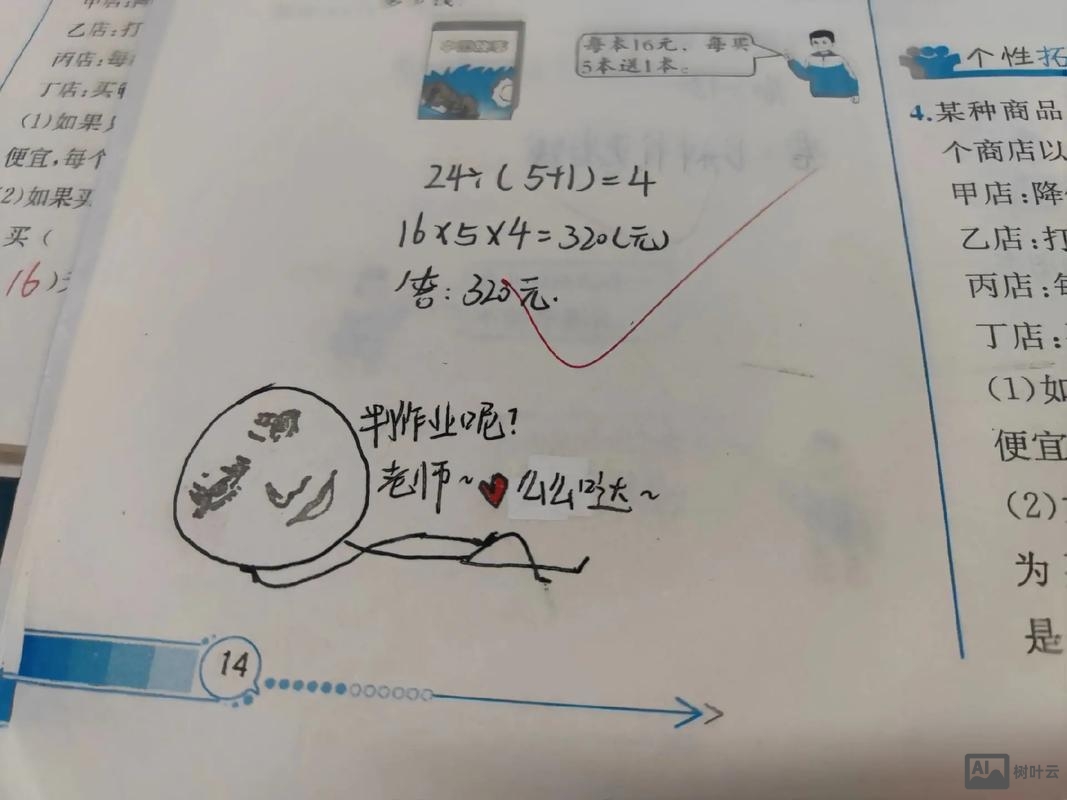 乙店:打
丙店:每
丁店:买
(1)如果
便宜,每个
2)如果买
买(
16)
每本16元,每买
5本送1本。
24÷(5+1)=4
16×5×4=320(元)
答:320元.
判作业呢?
老师~❤么么哒~
14
个性拓
4.某种商品
个商店以
甲店:降
乙店:打
丙店:每
丁店:
(1)如
便宜
(2)
为
是
AI 树叶云